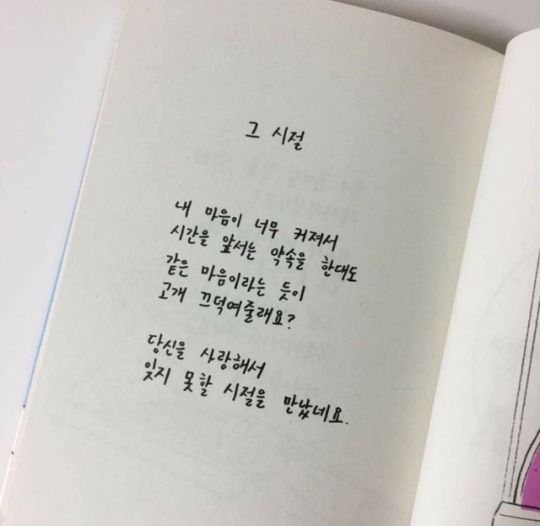 그 시절
내 마음이 너무 커져서
시간을 앞서는 약속을 한대도
같은 마음이라는 듯이
고개 끄덕여줄래요?
당신을 사랑해서
잊지 못할 시절을 만났네요.